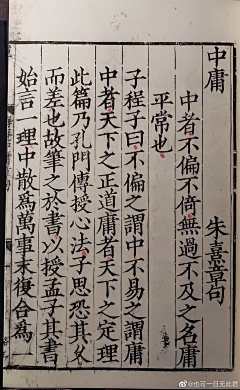 中庸　朱熹章句
中者不偏不倚無過不及之名庸
平常也
子程子曰不偏之謂中不易之謂庸
中者天下之正道庸者天下之定理
此篇乃孔門傳授心法子思恐其久
而差也故筆之於書以授孟子其書
始言一理中散爲萬事末復合爲一
@也可一日无此君